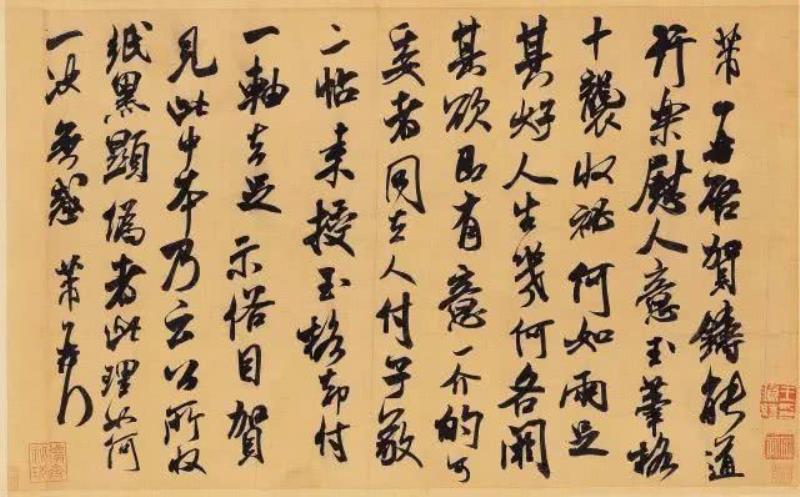 芾頓首啓賀鑄能道
行樂慰人意玉筆格
十襲收祕何如兩足
其好人生幾何各闕
其欲即有意一介的可
委者同去人付子敬
二帖來授玉格却付
一軸去足示俗目賀
見此中本乃云公所收
紙黑顯偽者此理如何
一決無惑芾頓首